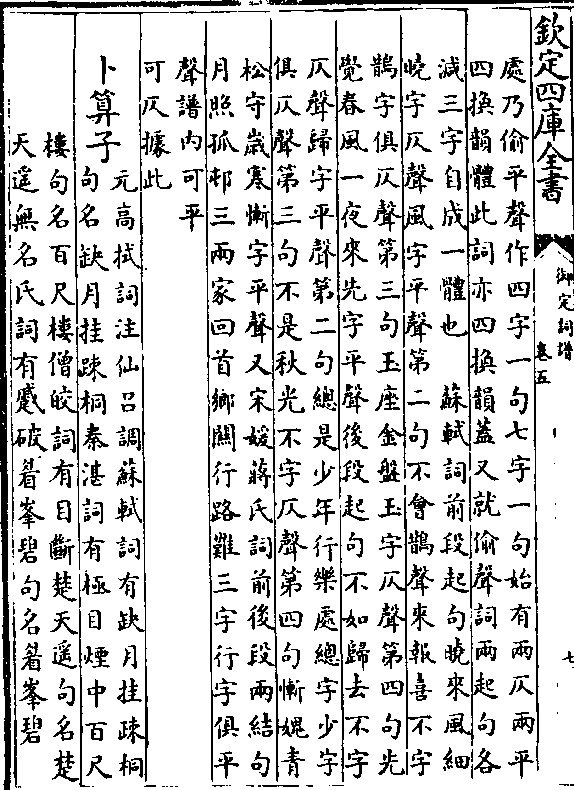 欽定四庫全書
御定詞譜
卷五
七
處乃偷平聲作四字一句七字一句始有兩仄兩平
四換韻體此詞亦四換韻蓋又就偷聲詞兩起句各
減三字自成一體也　蘇軾詞前段起句曉來風細
曉字仄聲風字平聲第二句不會鵲聲來報喜不字
鵲字俱仄聲第三句玉座金盤玉字仄聲第四句先
覺春風一夜來先字平聲後段起句不如歸去不字
仄聲歸字平聲第二句總是少年行樂處總字少字
俱仄聲第三句不是秋光不字仄聲第四句慚媿青
松守歲寒慚字平聲又宋媛蔣氏詞前後段兩結句
月照孤邨三兩家回首鄉關行路難三字行字俱平
聲譜內可平
可仄據此
卜算子
元高拭詞注仙呂調蘇軾詞有缺月挂疎桐
句名缺月挂疎桐秦湛詞有極目煙中百尺
樓句名百尺樓僧皎詞有目斷楚天遥句名楚
天遥無名氏詞有蹙破眉峯碧句名眉峯碧